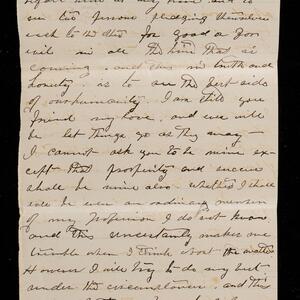 see two persons pledging themselves
each to the other for good or for
evil in all the time that is
coming. and this in truth and
honesty. is to see the best side
of our humanity. I am still your
friend my love. and we will
be let things go as they may —
I cannot ask you to be mine ex-
cept that prosperity and success
shall be mine also. whether I shall
ever be even an ordinary member
of my profession I do not know.
and this uncertainty makes me
tremble when I think about the matter
However I will try to do my best
under the circumstances. and this